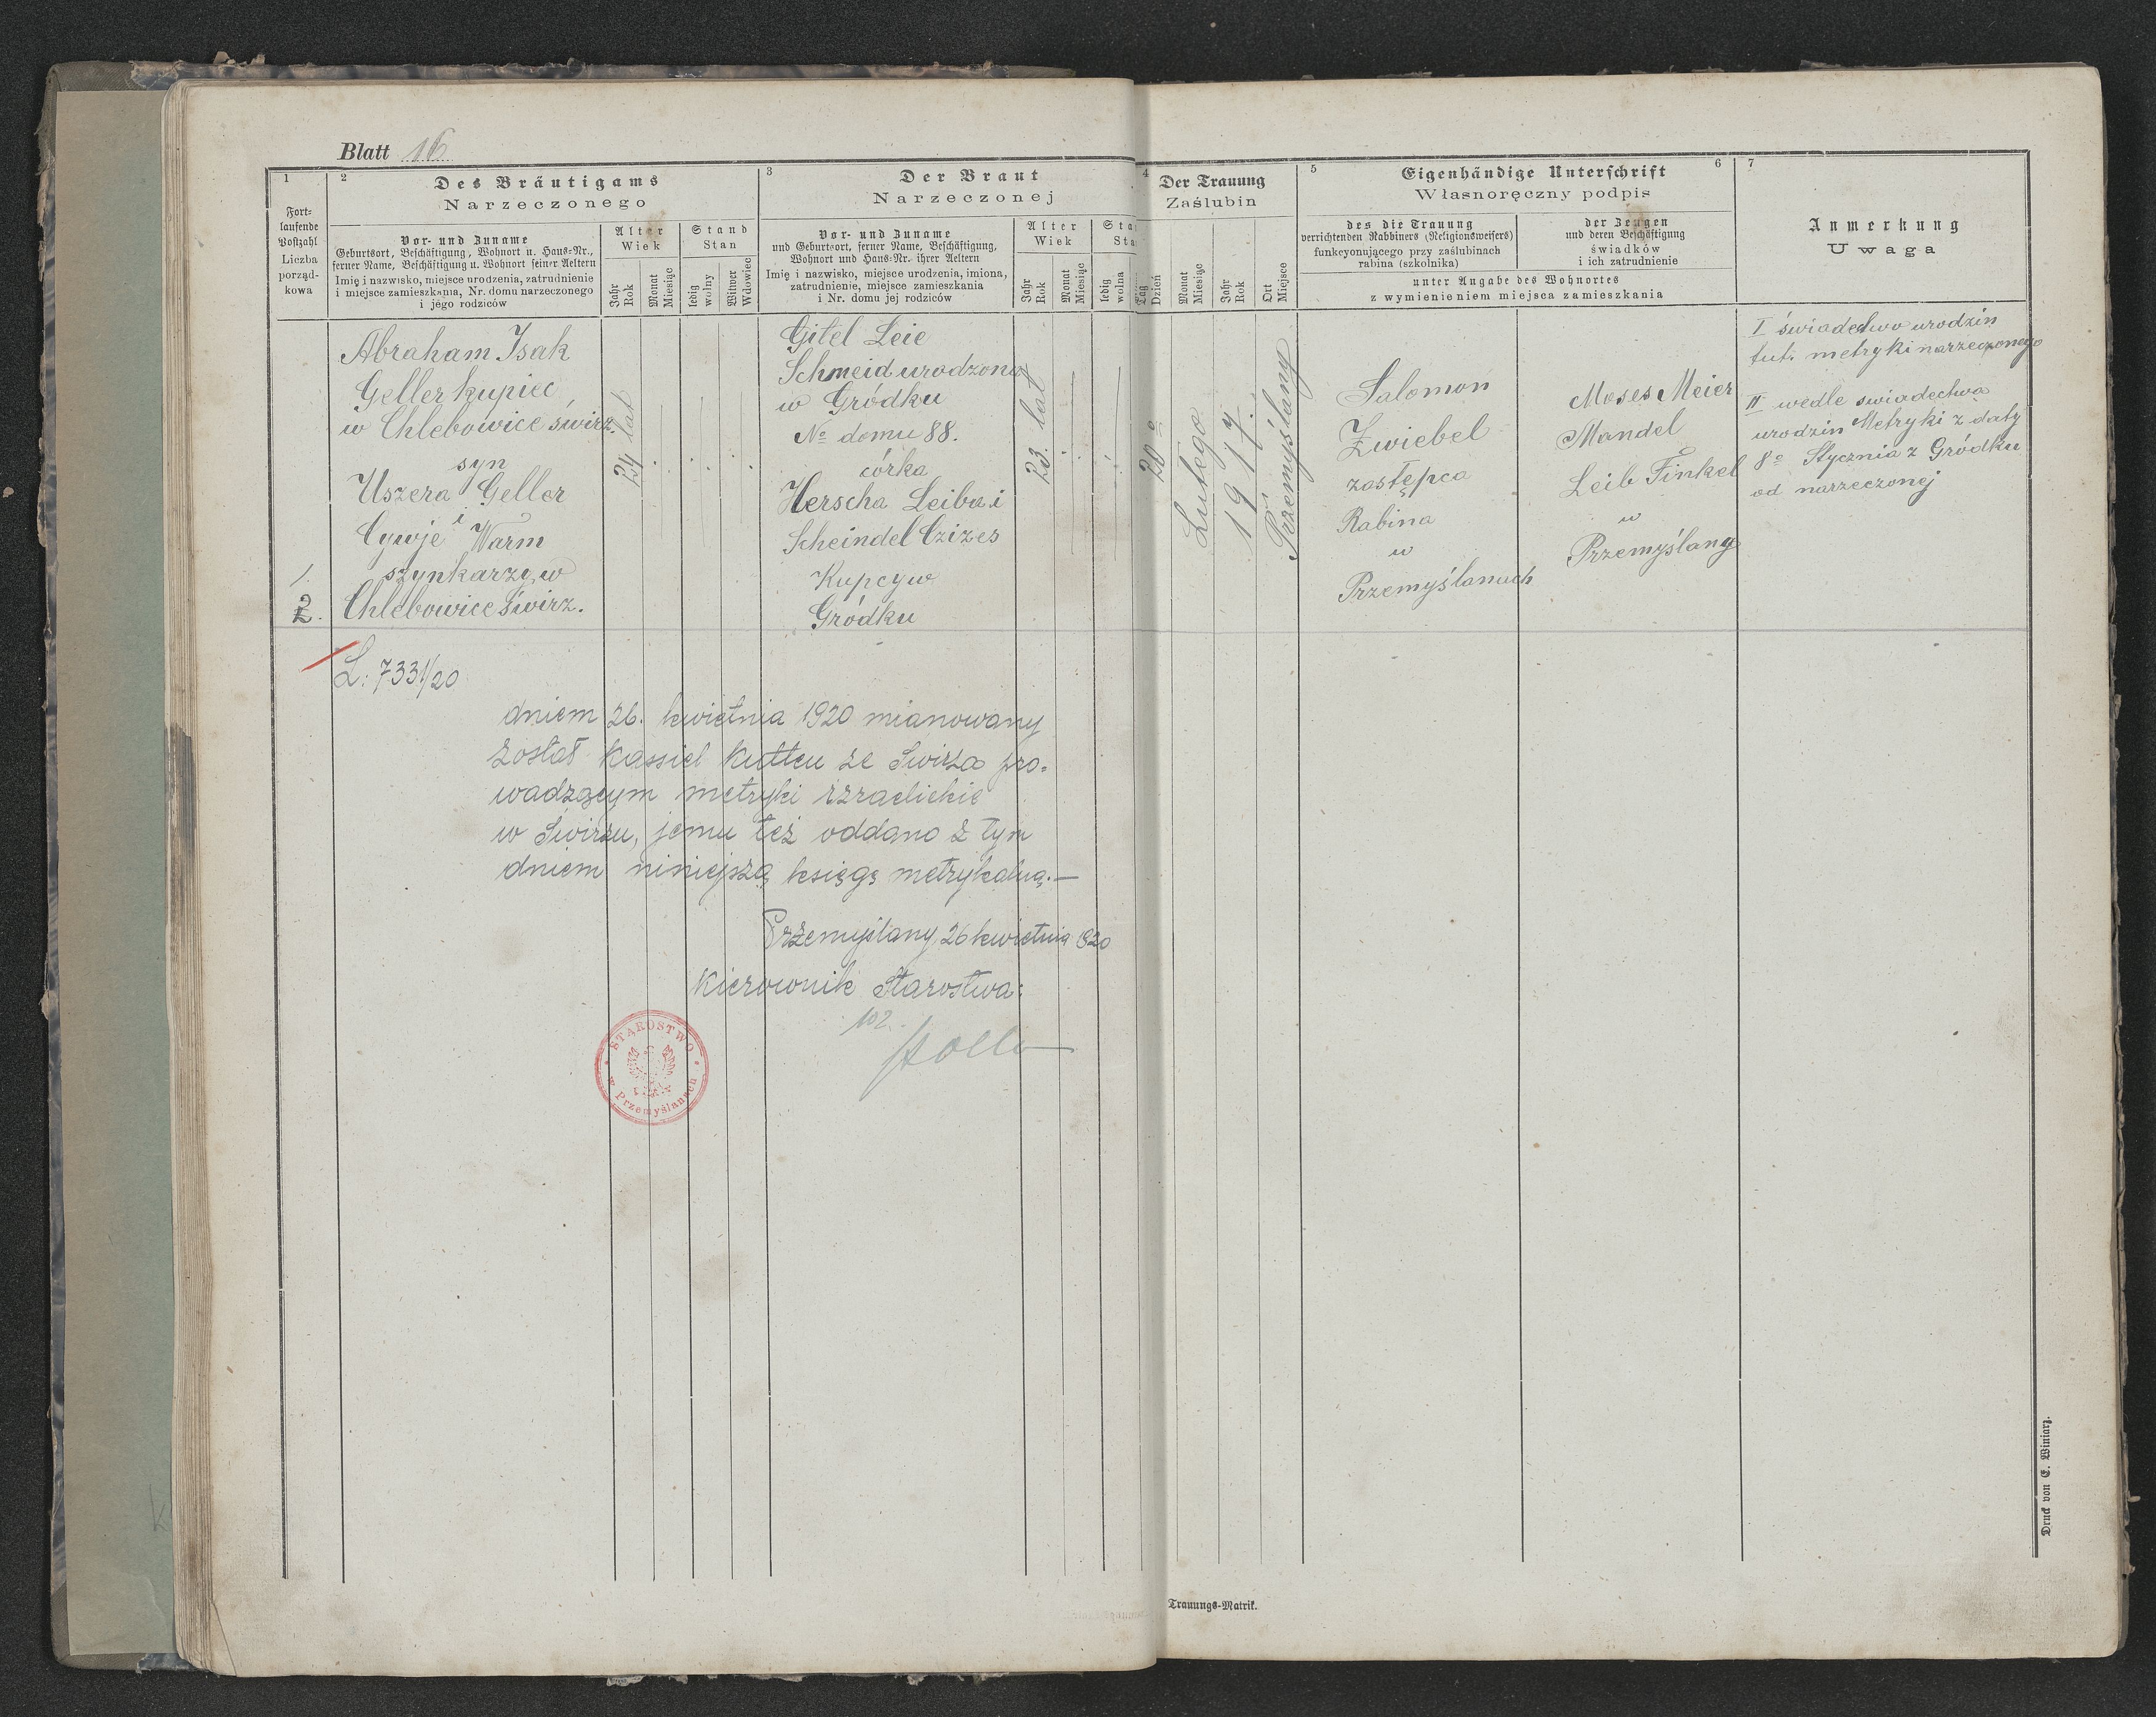 Blatt 16
1
Fort-
laufende
Postzahl
Liczba
porząd-
kowa
2
Des Bräutigams
Narzeczonego
Vor- und Zuname
Geburtsort, Beschäftigung, Wohnort u. Haus-Nr.,
ferner Name, Beschäftigung u. Wohnort seiner Aeltern
Imię i nazwisko, miejsce urodzenia, zatrudnienie
i miejsce zamieszkania, Nr. domu narzeczonego
i jego rodziców
Alter
Wiek
Jahr
Rok
Monat
Miesiąc
Stand
Stan
ledig
wolny
Witwer
Wdowiec
3
Der Braut
Narzeczonej
Vor- und Zuname
und Geburtsort, ferner Name, Beschäftigung,
Wohnort und Haus-Nr. ihrer Aeltern
Imię i nazwisko, miejsce urodzenia, imiona,
zatrudnienie, miejsce zamieszkania
i Nr. domu jej rodziców
Alter
Wiek
Jahr
Rok
Monat
Miesiąc
Sta
Sta
ledig
wolna
4
Der Trauung
Zaślubin
Tag
Dzień
Monat
Miesiąc
Jahr
Rok
Ort
Miejsce
5
Eigenhändige Unterschrift
6
Własnoręczny podpis
des die Trauung
verrichtenden Rabbiners (Religionsweisers)
funkcyonującego przy zaślubinach
rabina (szkolnika)
der Zeugen
und deren Beschäftigung
świadków
i ich zatrudnienie
unter Angabe des Wohnortes
z wymienieniem miejsca zamieszkania
7
Anmerkung
Uwaga
1.
2.
Abraham Isak
Geller kupiec
w Chlebowice świrz.
syn
Uszera Geller
i
Cywje Warm
szynkarze w
Chlebowice Świrz.
24 lat
Gitel Leie
Schmeid urodzona
w Gródku
No domu 88.
córka
Herscha Leiba i
Scheindel Czizes
Kupcy w
Gródku
23 lat
20o
Lutego
1917.
Przemyślany
Salomon
Zwiebel
zastępca
Rabina
w
Przemyślanach
Moses Meier
Mandel
Leib Finkel
w
Przemyślany
I świadectwo urodzin
tut. metryki narzeczonego
II wedle swiadectwa
urodzin Metryki z daty
8o Stycznia z Gródku
od narzeczonej
L: 7331/20
dniem 26. kwietnia 1920 mianowany
został Kassiel Kutten ze Swirza pro-
wadzącym metryki izraelickie
w Świrzu, jemu też oddano z tym
dniem niniejszą księgę metrykalną.—
Przemyślany, 26 kwietnia 1920
Kierownik Starostwa:
STAROSTWO
w Przemyślanach
Trauungs-Matrik.
Druck von E. Winiarz.